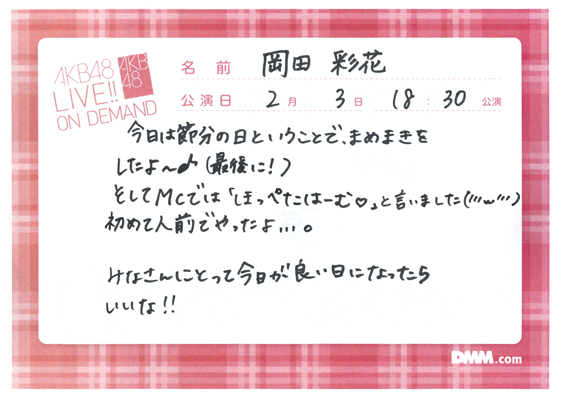 AKB48
LIVE!!
ON DEMAND
AKB
48
名前 岡田 彩花
公演日 2月 3日 18:30 公演
今日は節分の日ということで、まめまきを
したよ〜♪(最後に!)
そしてMCでは「ほっぺたこはーむ♡」と言いました(///w///)
初めて人前でやったよ...。
みなさんにとって今日が良い日になったら
いいな!!
DMM.com